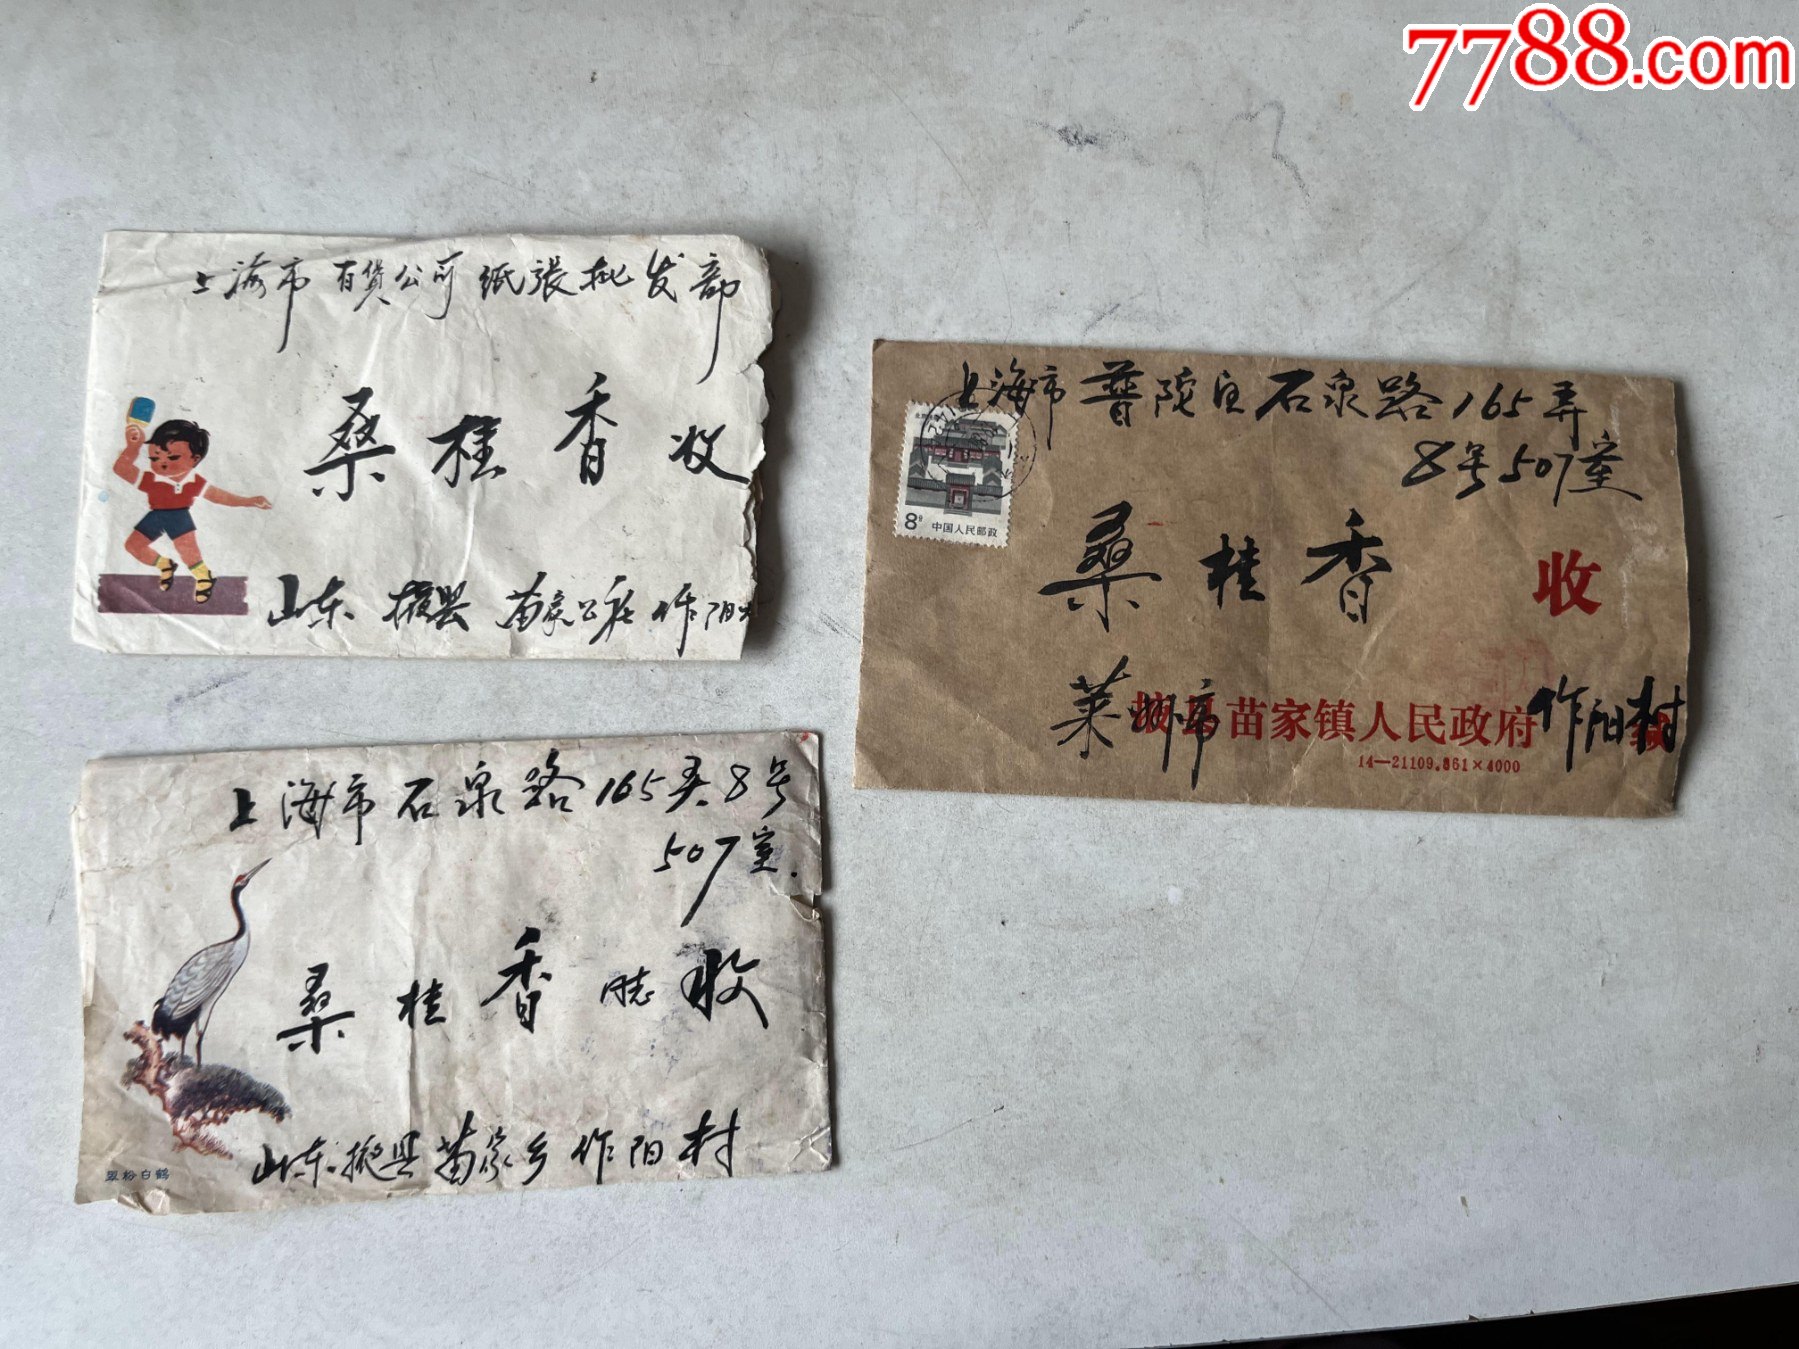 7788.com
上海市百货公司纸張批发部
桑桂香收
山东掖县苗家公社作阳村
上海市普陀区石泉路165弄
8号507室
北京民居
8分 中国人民邮政
桑桂香 收
莱州市 掖县苗家镇人民政府 作阳村
14—21109.861×4000
上海市石泉路165弄8号
507室.
桑桂香同志收
山东掖县苗家乡作阳村
翠粉白鹤